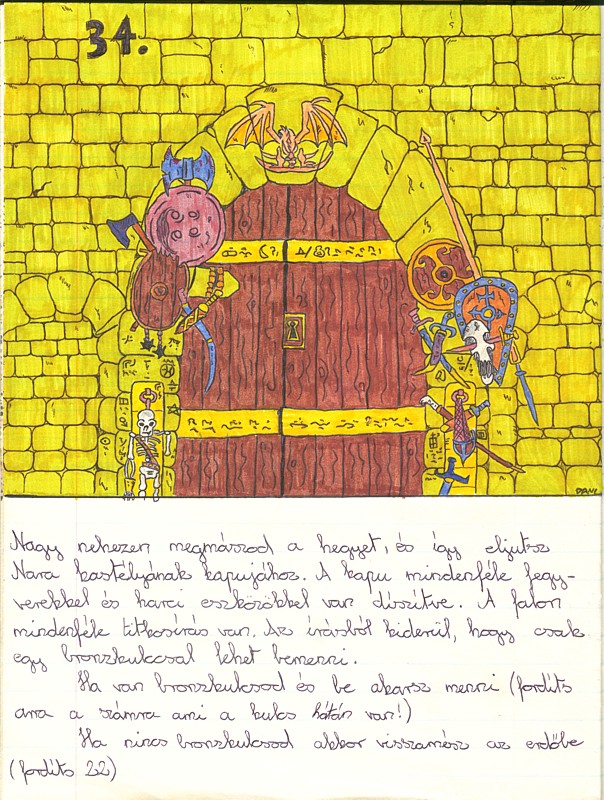 34.
DANI
Nagy nehezen megmászod a hegyet, és így eljutsz
Nara kastélyának kapujához. A kapu mindenféle fegy-
verekkel és harci eszközökkel van díszítve. A falon
mindenféle titkosírás van. Az írásból kiderül, hogy csak
egy bronzkulccsal lehet bemenni.
Ha van bronzkulcsod és be akarsz menni (fordíts
arra a számra ami a kulcs hátán van!)
Ha nincs bronzkulcsod akkor visszamész az erdőbe
(fordíts 22)